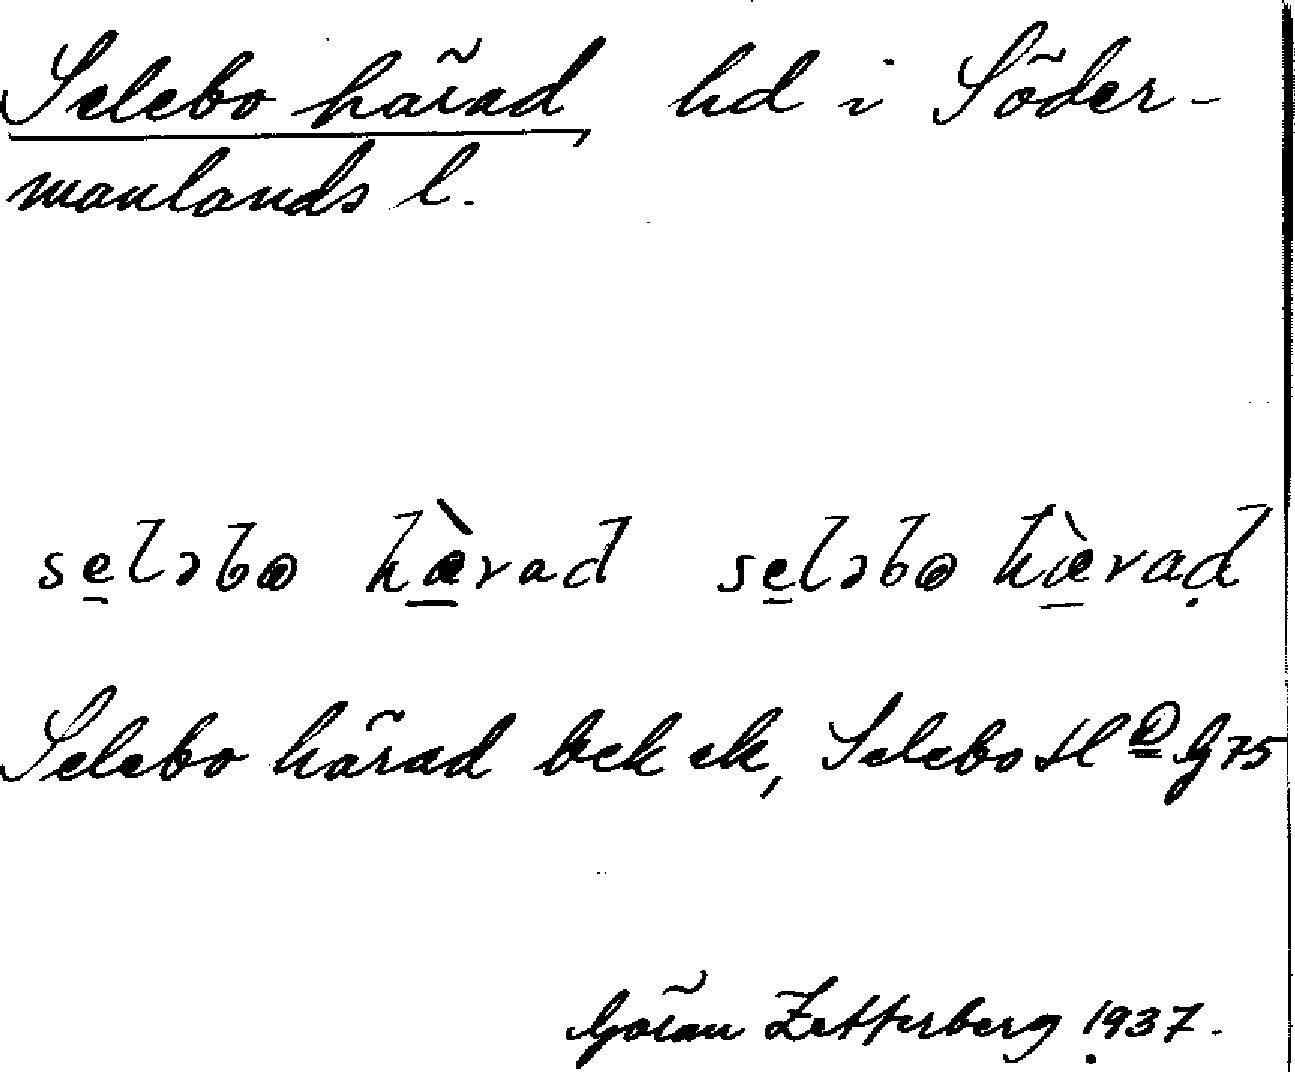 Selebo härad, hd i Söder-
manlands l.
se̠ləbɷ hæ̠̀rad se̠ləbɷ hæ̠̀raḍ
Selebo härad bek ek, Selebo Hd G 75
Göran Zetterberg 1937.